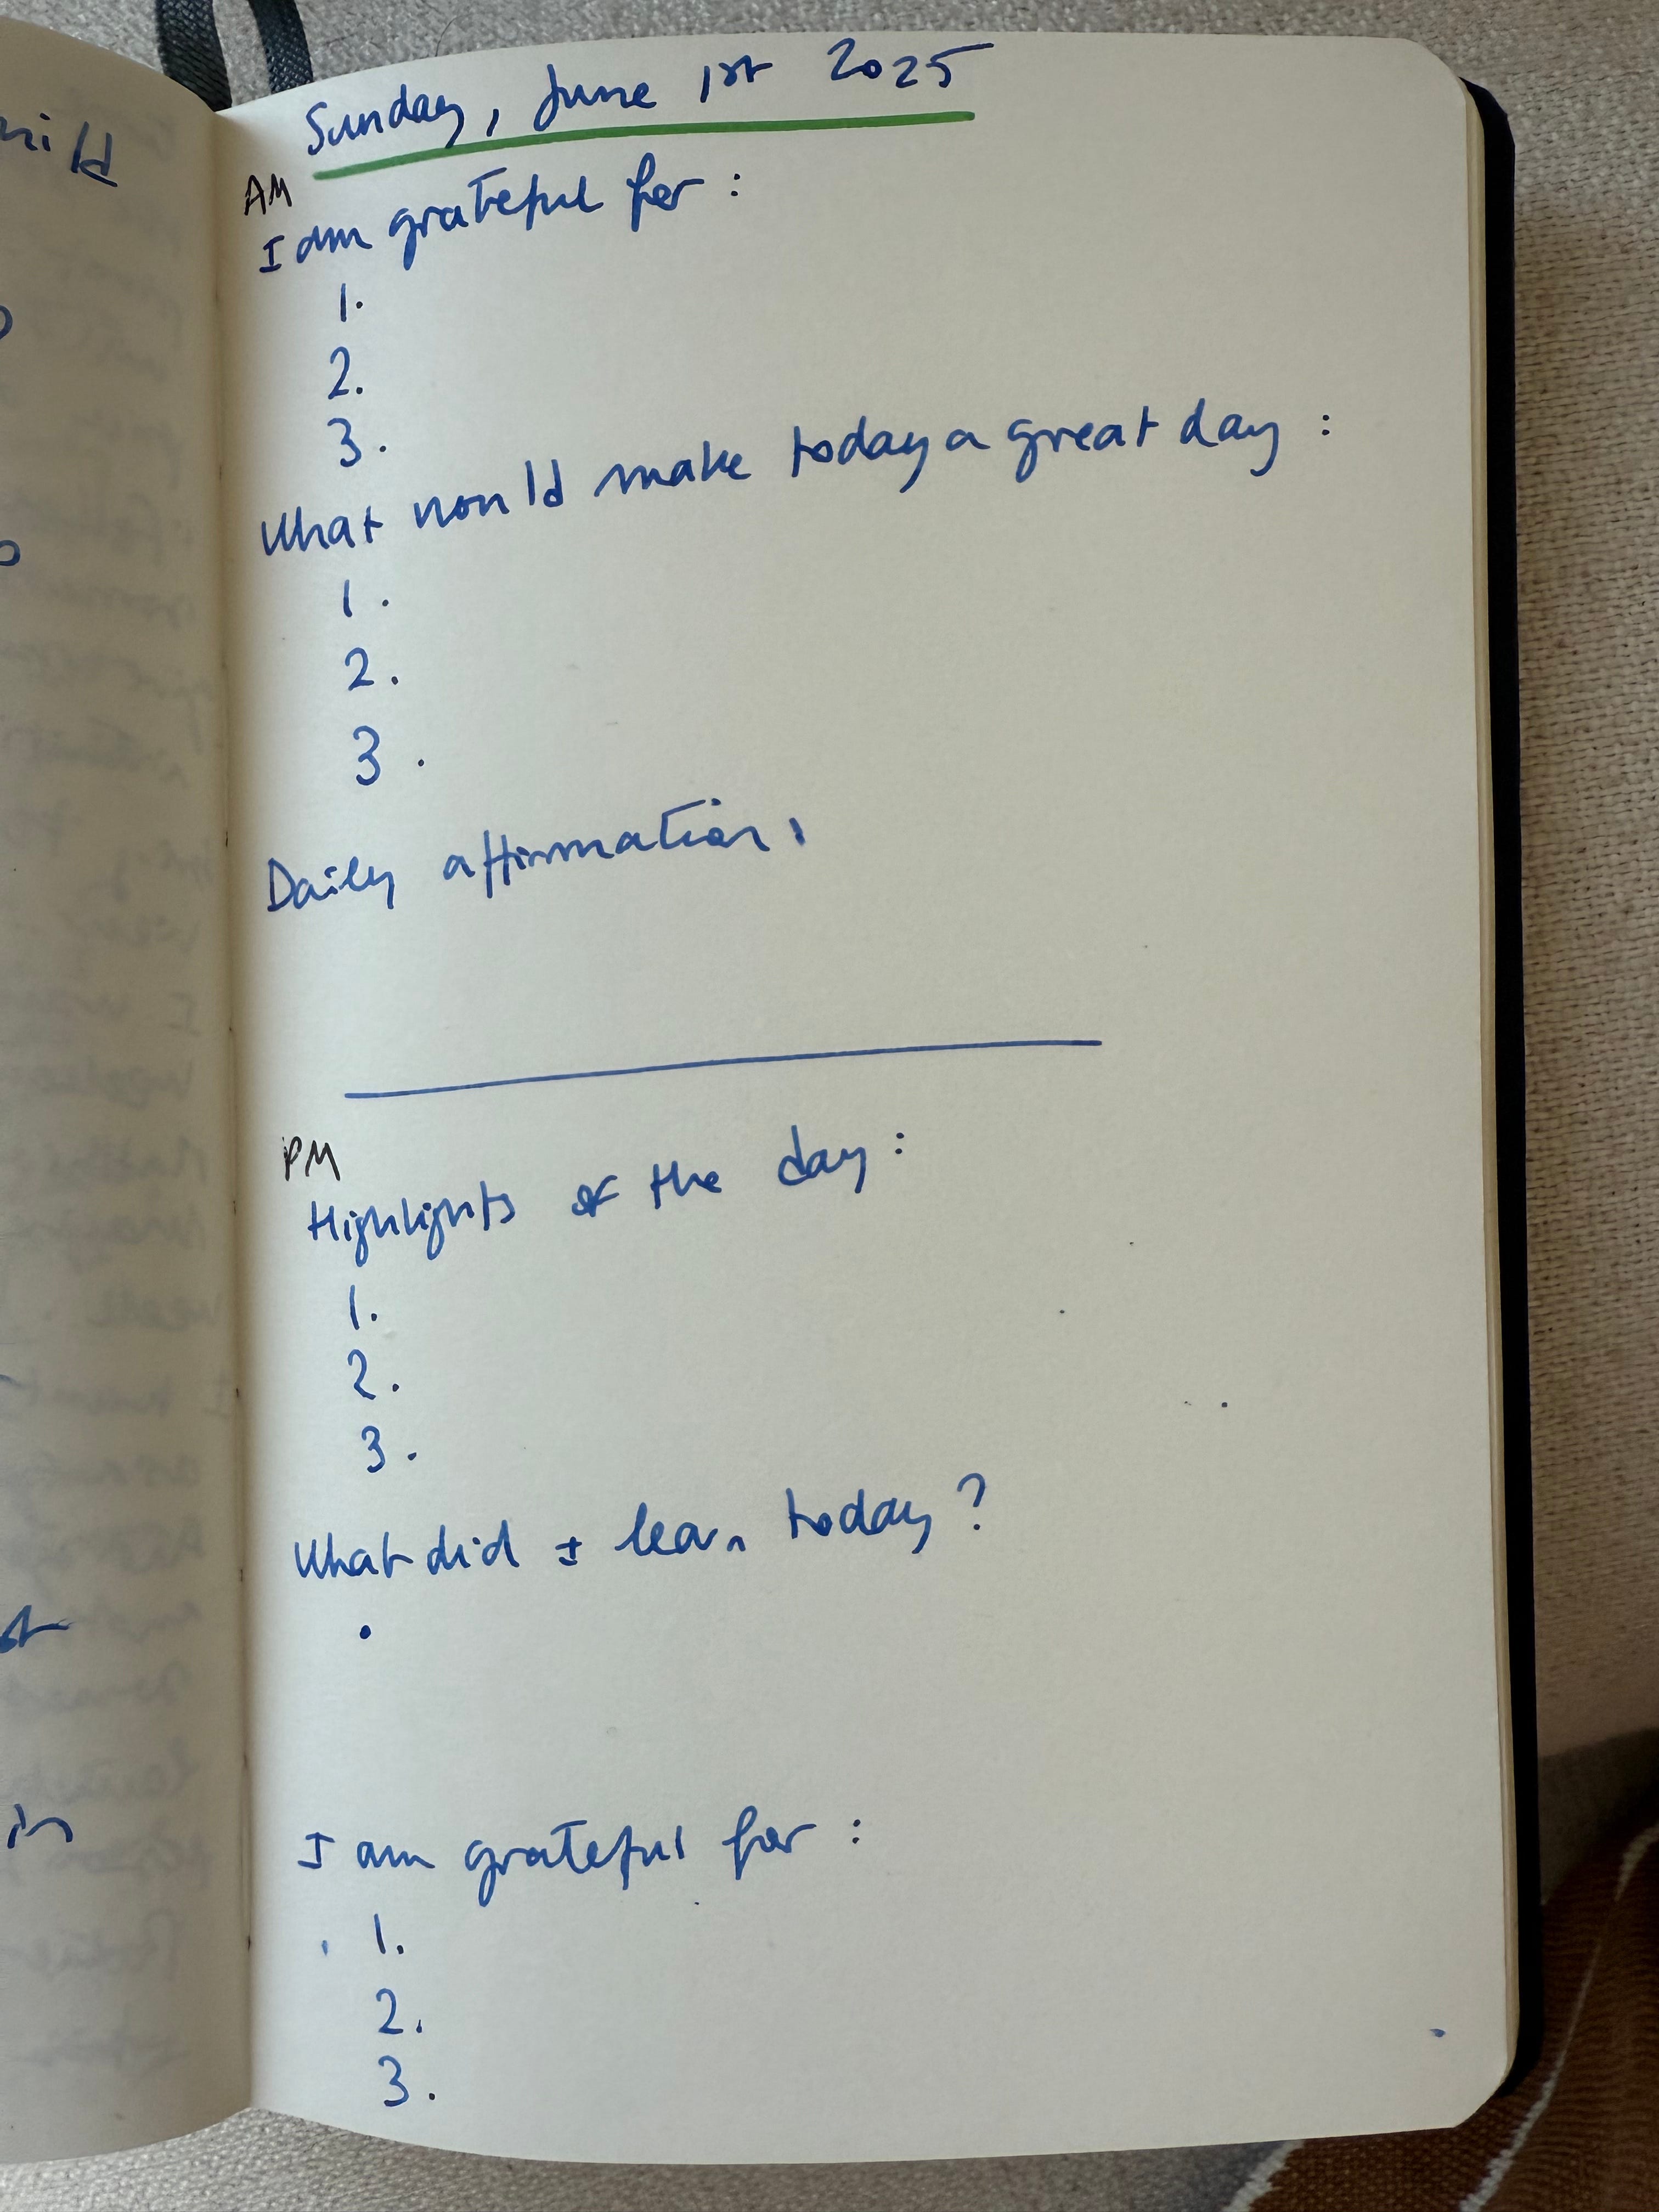 Sunday, June 1st 2025
AM
I am grateful for :
1.
2.
3.
What would make today a great day :
1.
2.
3.
Daily affirmation:
PM
Highlights of the day :
1.
2.
3.
What did I learn today ?
•
I am grateful for :
1.
2.
3.
in